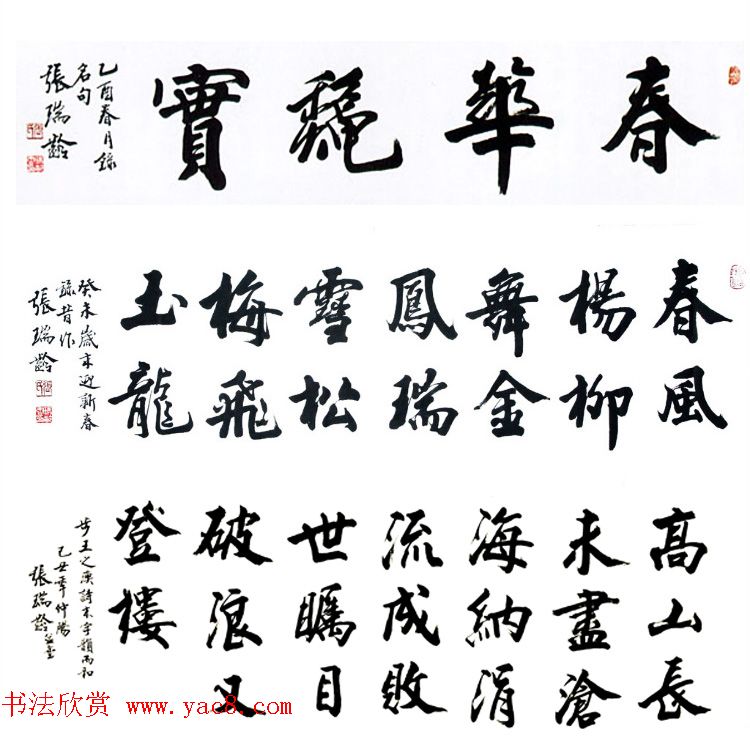 春華龝實
乙酉春月錄
名句
張瑞齡
春風
楊柳
舞金
鳳瑞
雪松
梅飛
玉龍
癸未歲末迎新春
錄昔作
張瑞齡
高山長
未盡滄
海納涓
流成敗
世矚目
破浪又
登樓
步王之渙詩末字韻而和
己丑年仲陽
張瑞齡並書
书法欣赏 www.yac8.com